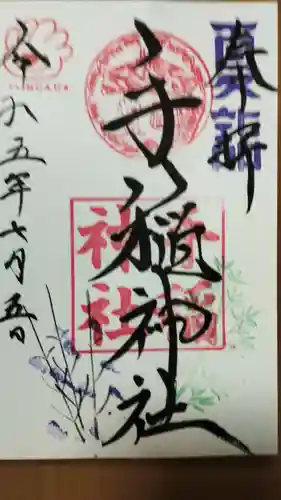 奉拝
夏詣
手稲神社
手稲神社
令和五年七月五日